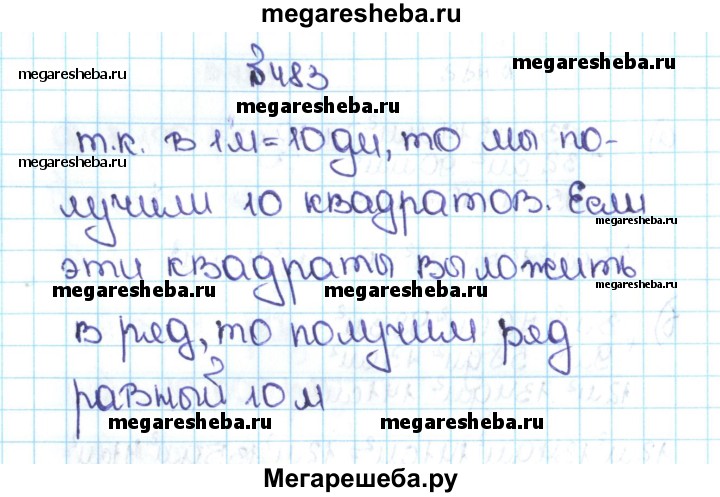 megaresheba.ru
№483
megaresheba.ru
megaresheba.ru
т.к. в 1м=10дм, то мы по-
megaresheba.ru
лучили 10 квадратов. Если
megaresheba.ru
эти квадраты выложить
megaresheba.ru megaresheba.ru
в ряд, то получим ряд
равный 10 м
megaresheba.ru megaresheba.ru
Мегарешеба.ру